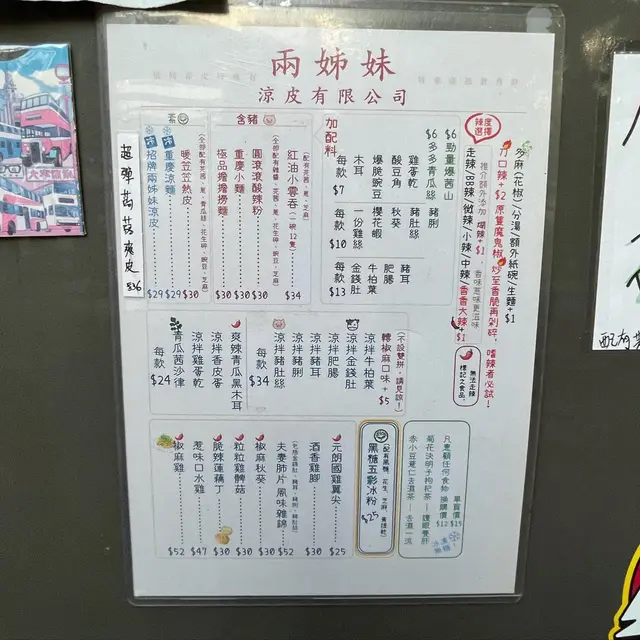 兩姊妹
涼皮有限公司
超彈蒟蒻寬皮 $36
素
招牌兩姊妹涼皮 $29
重慶涼麵 $29
暖笠笠熱皮 $30
含豬
極品擔擔撈麵 $30
重慶小麵 $30
圓滾滾酸辣粉 $30
紅油小雲吞(一碗12隻) $34
加配料
每款$7
木耳
爆脆豌豆
酸豆角
雞蛋乾
$6 多多青瓜絲
$6 勁量爆茜山
每款$10
一份雞絲
櫻花蝦
秋葵
豬肚絲
豬脷
每款$13
金錢肚
牛柏葉
肥腸
豬耳
辣度選擇
走辣/BB辣/微辣/小辣/中辣/香香大辣+$1
推介額外添加 煳辣+$1
多麻(花椒)/分湯/額外紙碗/生麵+$1
嗜辣者必試！
無法走辣
標記之食品。
每款$24
青瓜茜沙律
涼拌雞蛋乾
涼拌香皮蛋
爽辣青瓜黑木耳
每款$34
涼拌豬肚絲
涼拌豬脷
涼拌豬耳
涼拌肥腸
涼拌金錢肚
涼拌牛柏葉
轉椒麻口味+$5
(不設雙拼，請見諒！)
椒麻雞 $52
惹味口水雞 $47
脆辣蓮藕丁 $30
粒粒雞髀菇 $30
椒麻秋葵 $30
夫妻肺片風味雜錦 $52
酒香雞腳 $30
元朗國雞翼尖 $25
黑糖五彩冰粉 $25
赤小豆薏仁去濕茶—去濕一流
菊花決明子枸杞茶—護眼養肝
凡惠顧任何食物 換購價$12
單買價$15